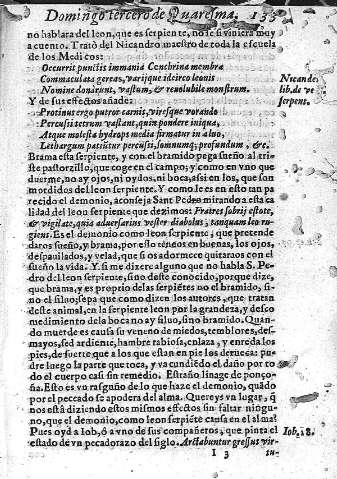 Domingo tercero de Quaresma. 133
no hablara del leon, que es serpiente, no le si viniera muy
a cuento. Trató del Nicandro maestro de toda la escuela
de los Medicos:
Occurrit punctis immania Cenchrina membra
Commaculata gerens, varijque ideirco leonis
Nomine donarunt, vastum, & revolubile monstrum.
Y de sus effectos añade:
Protinus ergo putror carnis, viresque vorando
Percussi tetrum vastant, quin pondere iniqua,
Atque molesta hydrops media firmatur in alvo,
Lethargum patiŭtur percussi, somnumq; profundum, &c.
Nican de
lib. de ve
serpens.
Brama esta serpiente, y con el bramido pega sueño al tri-
ste pastorzillo, que coge en el campo; y como en vno que
duerme, no ay ojos, ni oydos, ni boca, asi en los, que son
mordidos del leon serpiente. Y como le es en esto tan pa
recido el demonio, aconseja Sant Pedro mirando a esta ca
lidad del leon serpiente que dezimos: Fratres sobrij estote,
& vigilate, quia adversarius vester diabolus, tanquam leo ru-
giens. Es el demonio como leon serpiente, que pretende
daros sueño, y brama, por esso teneos en buenas, los ojos,
despauilados, y velad, que si os adormece quitaraos con el
sueño la vida. Y si me dizere alguno que no habla S. Pe-
dro del leon serpiente, sino deste conocido, porque dize,
que brama, y es proprio de las serpiētes no el bramido, si-
no el siluo; sepa que como dizen los autores, que tratan
deste animal, en la serpiente leon por la grandeza, y desco
medimiento de la boca no ay siluo, sino bramido. Quan-
do muerde es causa su veneno de miedos, temblores, des-
mayos, sed ardiente, hambre rabiosa, enlaza, y enreda los
pies, de suerte que a los que estan en pie los derueca: pu-
dre luego la parte que toca, y va cundiēdo el daño por to
do el cuerpo casi sin remedio. Estraño linage de ponço-
ña. Esto es vn rasguño de lo que haze el demonio, quādo
por el peccado se apodera del alma. Quereys vn lugar, q̄
nos está diziendo estos mismos effectos sin faltar ningu-
no, que el demonio, como leon serpiēte causa en el alma?
Pues oyd a Iob, ó a vno de sus compañeros, que pinta el
estado de vn pecadorazo del siglo. Arctabuntur gressus vir-
Iob. 18.
I 3
tu-